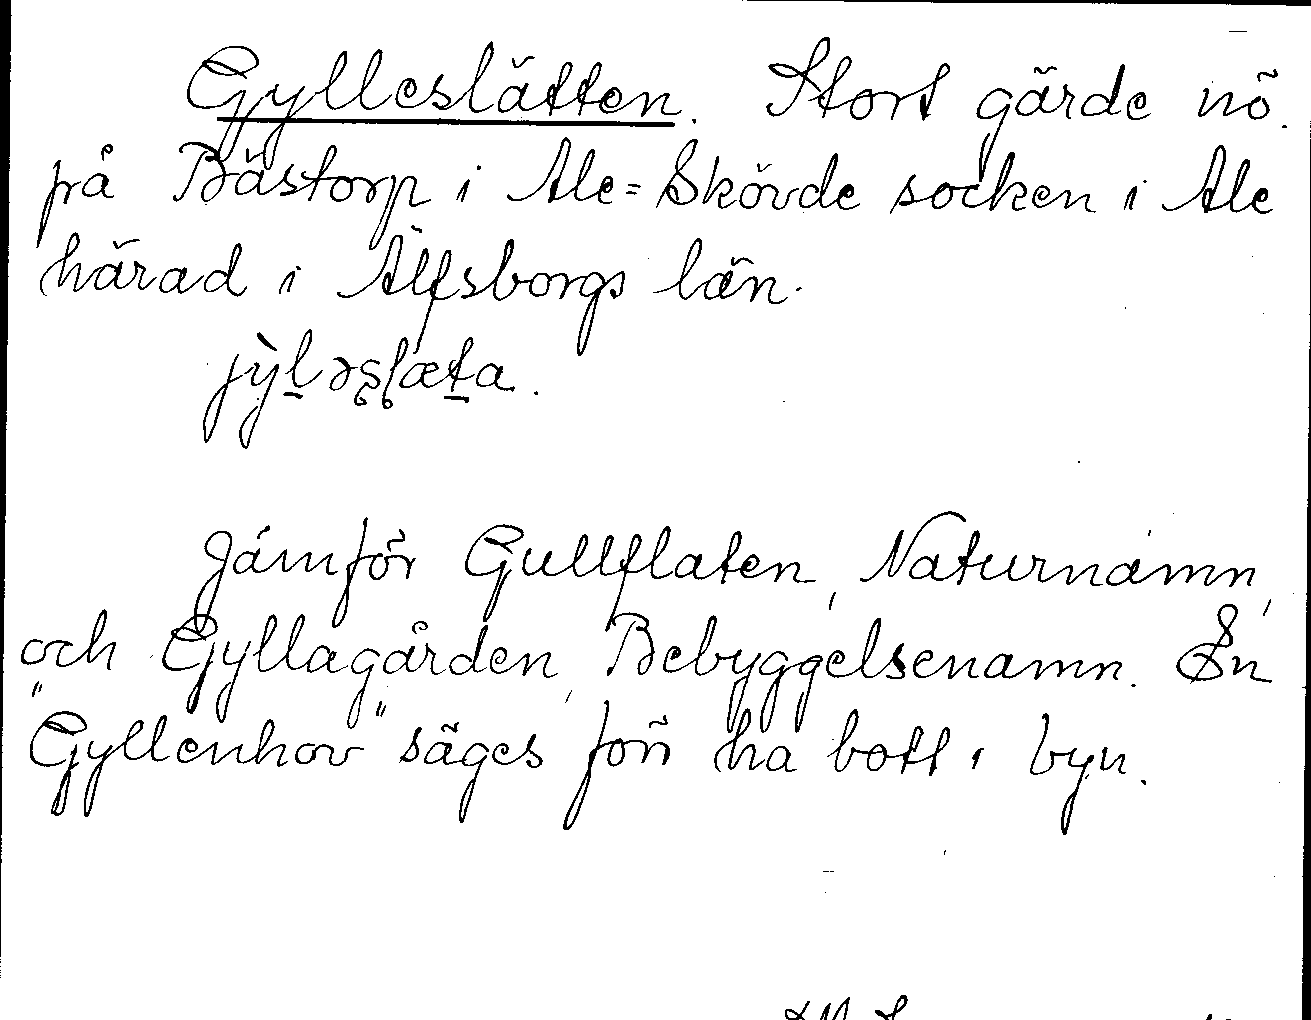 Gylleslätten. Stort gärde nö.
på Båstorp i Ale=Skövde socken i Ale
härad i Älfsborgs län.
Jämför Gullflaten, Naturnamn,
och Gyllagården, Bebyggelsenamn. En
"Gyllenhov" säges förr ha bott i byn.